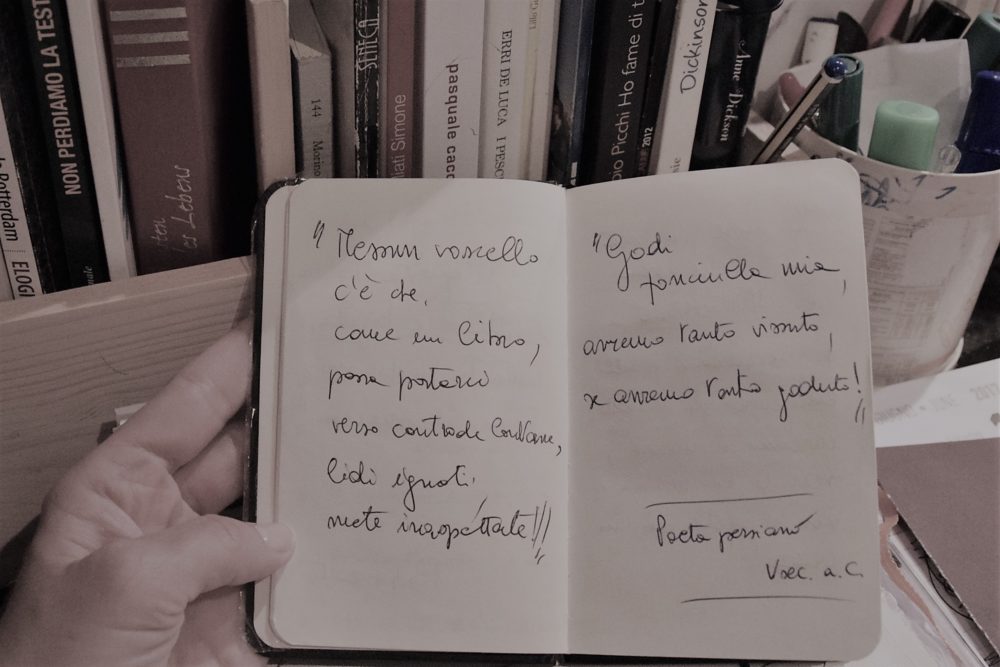 NON PERDIAMO LA TEST
Rotterdam
ELOGI
Leben
144
SENECA
Simone
pasquale cacc
ERRI DE LUCA I PESC
io Picchi Ho fame di t
2012
Dickinson
Anne Dickson
"Nessun vascello
c'è che,
come un libro,
possa portarci
verso contrade lontane,
lidi ignoti,
mete inaspettate!!!"
"Godi
fanciulla mia,
avremo tanto vissuto,
se avremo tanto goduto!"
Poeta persiano
V sec. a.C.